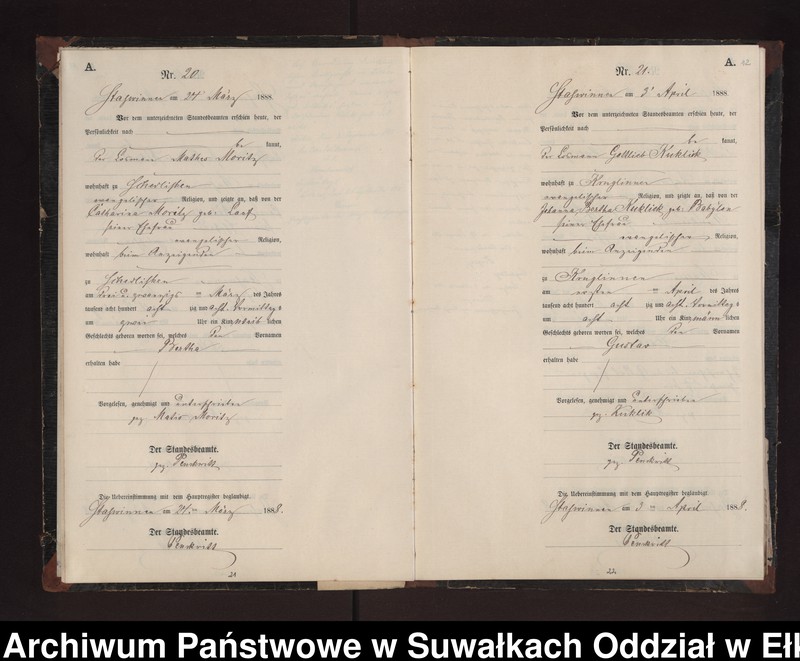 A.
Nr. 20
Staswinnen am 24 März 1888.
Vor dem unterzeichneten Standesbeamten erschien heute, der
Persönlichkeit nach
be kannt,
der Losmann Mathes Moritz
wohnhaft zu
evangelischer Religion, und zeigte an, daß von der
Catharina Moritz geb.
seiner Ehefrau
evangelischer Religion,
wohnhaft beim Anzeigenden
zu
am drei u. zwanzigs ten März des Jahres
tausend acht hundert acht zig und acht Vormittags
um zwei Uhr ein Kind weib lichen
Geschlechts geboren worden sei, welches den Vornamen
Bertha
erhalten habe
Vorgelesen, genehmigt und unterschrieben
gez. Moritz
Der Standesbeamte.
gez.
Die Uebereinstimmung mit dem Hauptregister beglaubigt.
Staswinnen am 24. ten März 1888.
Der Standesbeamte.
21
A. 12
Nr. 21.
Staswinnen am 3 April 1888.
Vor dem unterzeichneten Standesbeamten erschien heute, der
Persönlichkeit nach
be kannt,
der Losmann Gottlieb Kuklick
wohnhaft zu Kruglinnen
evangelischer Religion, und zeigte an, daß von der
Johanna Bertha Kuklick geb. Babylon
seiner Ehefrau
evangelischer Religion,
wohnhaft beim Anzeigenden
zu Kruglinnen
am ersten April des Jahres
tausend acht hundert acht zig und acht Vormittags
um acht Uhr ein Kind männ lichen
Geschlechts geboren worden sei, welches den Vornamen
Gustav
erhalten habe
Vorgelesen, genehmigt und unterschrieben
gez. Kuklik
Der Standesbeamte.
gez.
Die Uebereinstimmung mit dem Hauptregister beglaubigt.
Staswinnen am 3 ten April 1888.
Der Standesbeamte.
22
Archiwum Państwowe w Suwałkach Oddział w Ełk